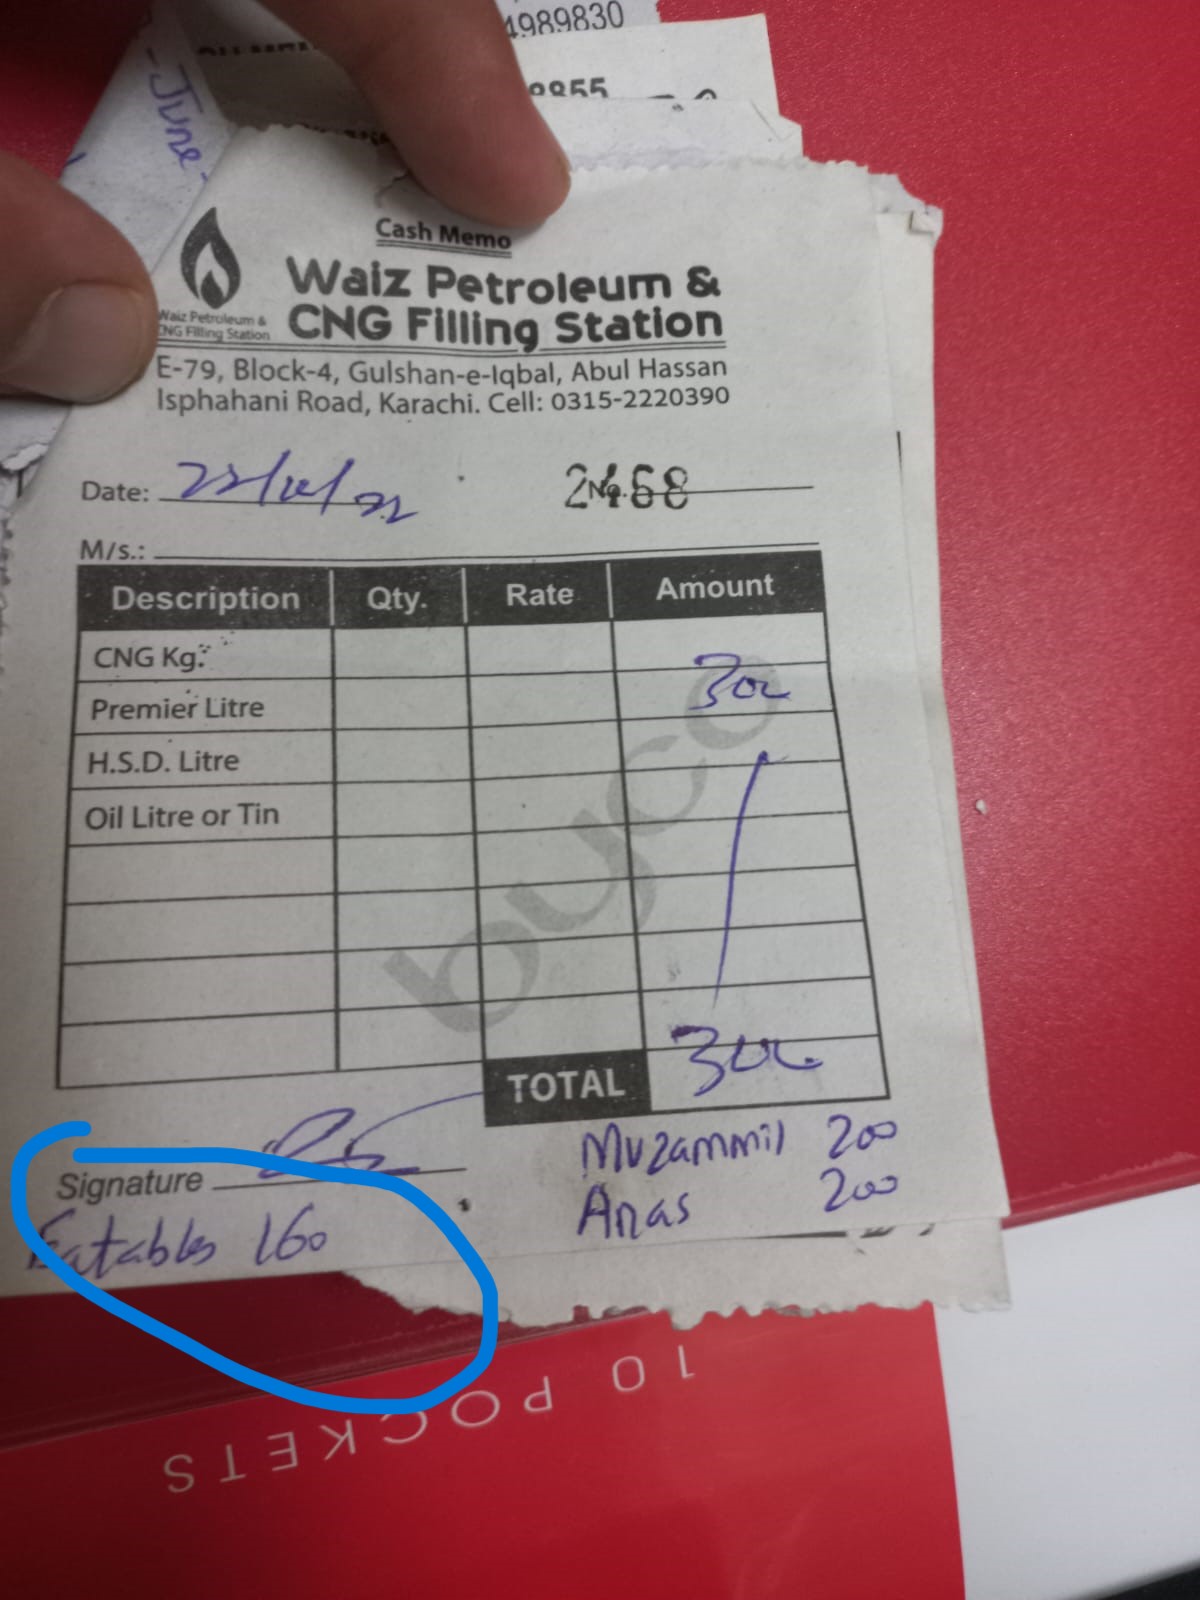 4989830
8855
-June-
Cash Memo
Waiz Petroleum &
CNG Filling Station
Waiz Petroleum &
CNG Filling Station
E-79, Block-4, Gulshan-e-Iqbal, Abul Hassan
Isphahani Road, Karachi. Cell: 0315-2220390
Date:
No. 2468
M/s.:
Description Qty. Rate Amount
CNG Kg.
Premier Litre
300
H.S.D. Litre
Oil Litre or Tin
byco
TOTAL 300
Signature
Muzammil 200
Anas 200
Eatables 160
10 POCKETS